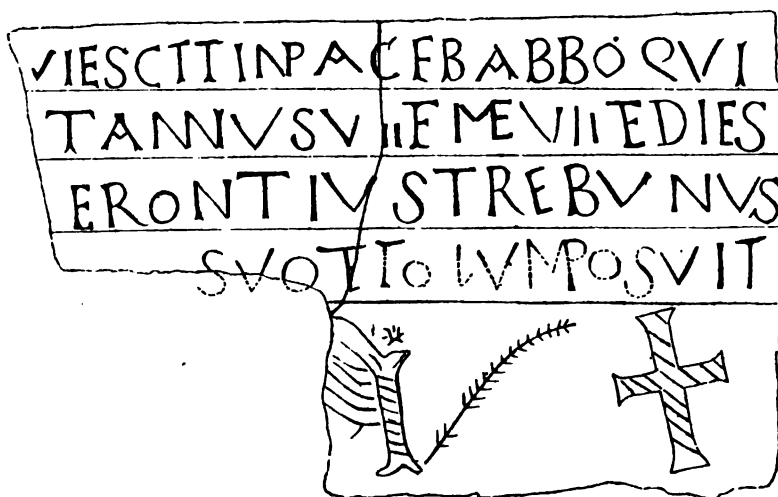 VIESCTTINPACEBABBOQVI
TANNVSVIIFMEVIITEDIES
ERONTIVSTREBVNVS
SVOTITOLVMPOSVIT